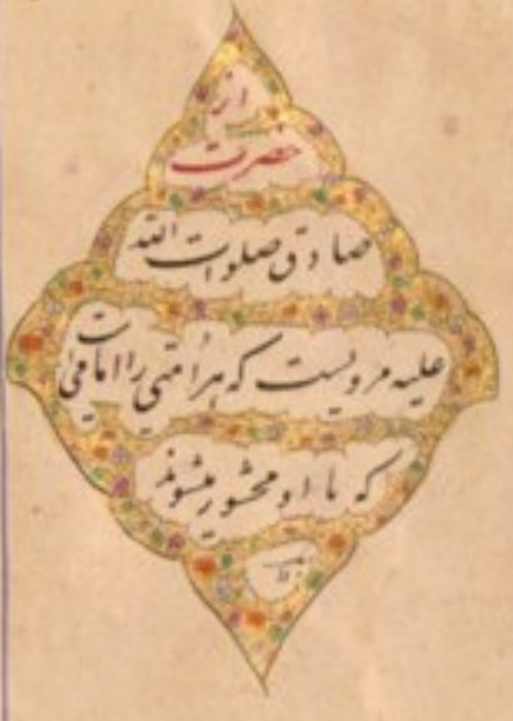 از
حضرت
صادق صلوات الله
علیه مرویست که هر امتی را امامی است
که با او محشور میشوند